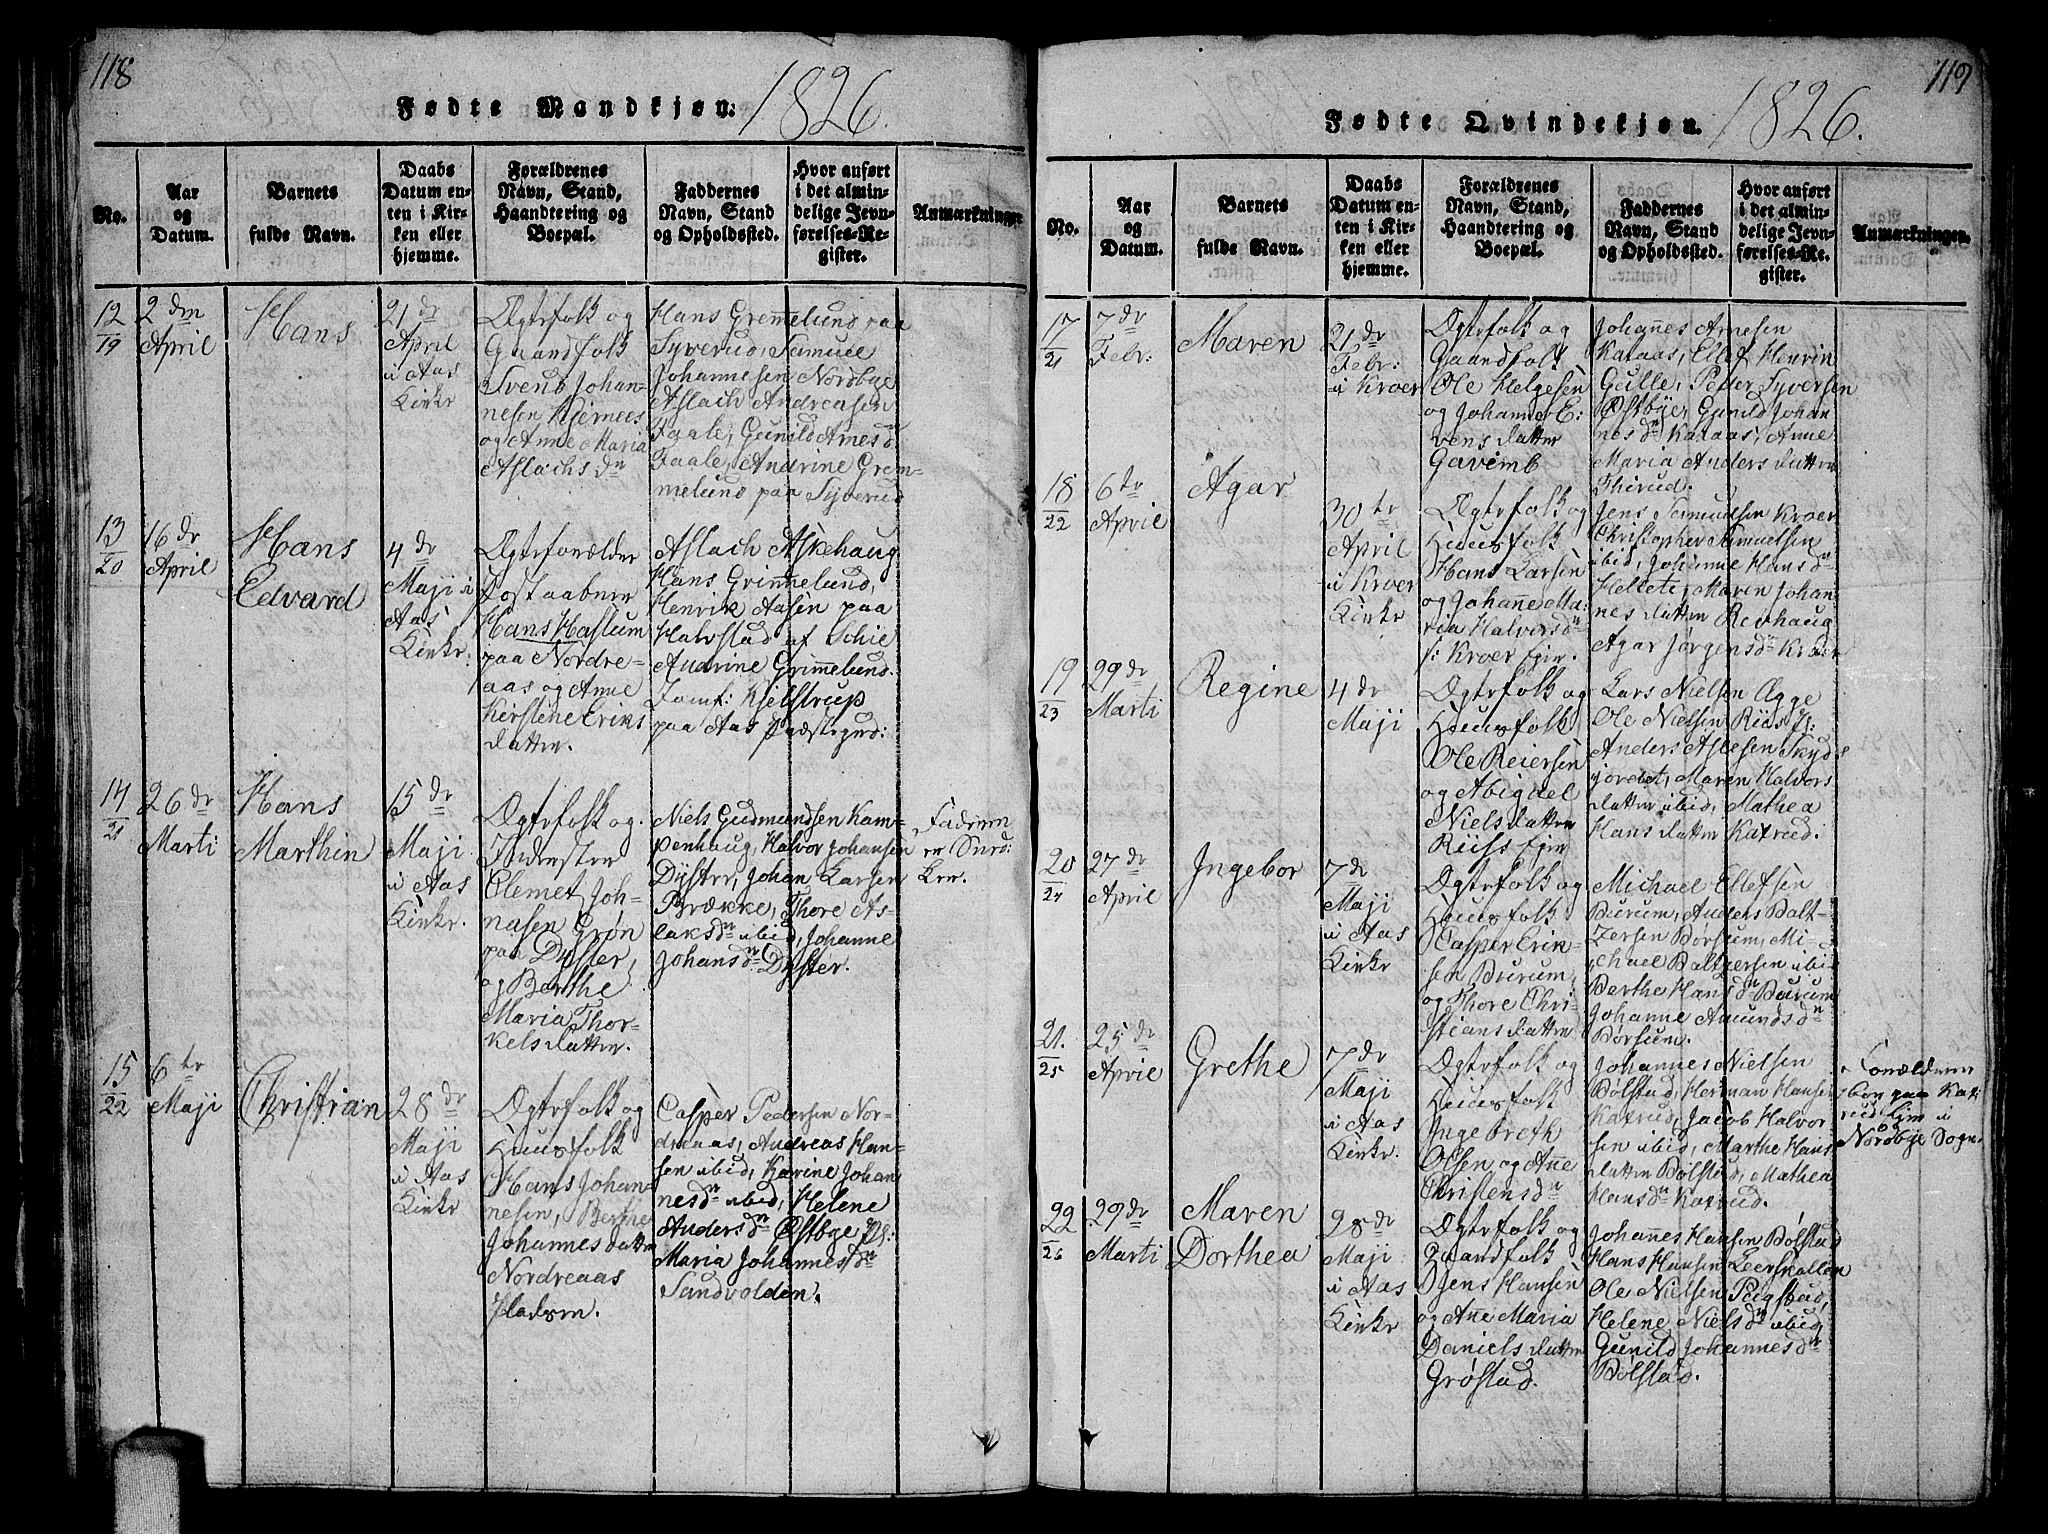 118
Fødte Mandkjøn. 1826.
No.
Aar
og
Datum.
Barnets
fulde Navn.
Daabs
Datum en-
ten i Kir-
ken eller
hjemme.
Forældrenes
Navn, Stand,
Haandtering og
Boepæl.
Faddernes
Navn, Stand
og Opholdssted.
Hvor anført
i det almin-
delige Jevn-
førelses-Re-
gister.
Anmærkninger.
12
19
2den
April
Hans
21de
April
i Aas
Kirke
Ægtefolk og
Gaardfolk
Svend Johan-
nesen Kjernees
og Anne Maria
Aslachsdn
Hans Grimmelund paa
Syverud, Samuel
Johannesen Nordbye
Aslach Andreasen
Faale, Gunild Arnesd
Faale, Andrine Grem-
melund paa Syverud
13
20
16de
April
Hans
Edvard
4de
Maji i
Aas
Kirke:
Ægteforælder
Postaabner
Hans Haslum
paa Nordre-
aas og Anne
Kirstene Eriks
datter.
Aslach Askehaug
Hans Grimmelund,
Henrik Aasen paa
Halvstad af Schie
Andrine Grimmelund.
Jomf: Kjelstrup
paa Aas Præstegrd:
14
21
26de
Marti
Hans
Marthin
15de
Maji
i Aas
Kirke.
Ægtefolk og
Inderster
Clemet Joh-
nasen Grøn
paa Dyster,
og Berthe
Maria Thor-
kelsdatter.
Niels Gudmundsen Kam-
penhaug, Halvor Johansen
Dyster, Johan Larsen
Brække, Thore As-
laksdn ibid, Johanne
Johansdn Dyster.
Faderen
er Sned:
ker.
15
22
6te
Maji
Christian
28de
Maji
i Aas
Kirke
Ægtefolk og
Huusfolk
Hans Johan-
nesen, Berthe
Johannesdatter
Nordreaas
Pladsen.
Casper Pedersen Nor-
dreaas, Andreas Han-
sen ibid, Karine Johan
nesdn ibid, Helene
Andersdn Østbye Pl:
Maria Johannesdn
Sandvolden.
119
Fødte Qvindekjøn. 1826.
No.
Aar
og
Datum.
Barnets
fulde Navn.
Daabs
Datum en-
ten i Kir-
ken eller
hjemme.
Forældrenes
Navn, Stand,
Haandtering og
Boepæl.
Faddernes
Navn, Stand
og Opholdssted.
Hvor anført
i det almin-
delige Jevn-
førelses-Re-
gister.
Anmærkninger.
17
21
7de
Febr:
Maren
21de
Febr:
i Kroer
Ægtefolk og
Gaardfolk
Ole Helgesen
og Johanne E:
vensdatter
Johannes Arnesen
Karaas, Ellef Henrik
Gulle, Peder Syversen
Østbye, Gunild Johan
nesdn Karaas, Anne
Maria Andersdatter
Thirud.
18
22
6te
April
Agar
30te
April
i Kroer
Kirke
Ægtefolk og
Huusfolk
Hans Larsen
og Johanne Ma:
ria Halvorsdn
Kroer Eier.
Jens Samuelsen Kroer
Christopher Samuelsen
ibid, Johanne Hansdn
Maren Johan
nesdatter Revhaug
Agar Jørgensdn Kroer
19
23
29de
Marti
Regine
4de
Maji
Ægtefolk og
Huusfolk
Ole Reiersen
og Abiguel
Nielsdatter
Riiss Eier
Lars Nielsen Ægge
Ole Nielsen Riis Pl:
Anders Aslesen Skyds
jordet, Maren Halvors
datter ibid, Mathea
Hansdatter Kaxrud.
20
24
27de
April
Ingebor
7de
Maji
i Aas
Kirke
Ægtefolk og
Huusfolk
Casper Erik-
sen Burum,
og Thore Chri-
stiansdatter
Michael Ellefsen
Burum, Anders Balt-
zersen Børsum, Mi-
chael Baltzersen ibid
Berthe Hansdn Burum
Johanne Amundsdn
Børsum.
21.
25
25de
April
Grethe
7de
Maji
i Aas
Kirke.
Ægtefolk og
Huusfolk
Ingebreth
Olsen og Anne
Christensdn
Johannes Nielsen
Bølstad, Herman Hansen
Kaxrud, Jacob Halvor
sen ibid, Marthe Hans
datter Bølstad, Mathea
Hansdn Kaxrud.
Forældrene
boer paa Kax
rud Eier i
Nordbye Sogn.
22
26
29de
Marti
Maren
Dorthea
28de
Maji
i Aas
Kirke
Ægtefolk og
Gaardfolk
Jens Hansen
og Ane Maria
Danielsdatter
Grøstad.
Johannes Hansen Bølstad
Hans Hansen Leerskallen
Ole Nielsen Pugstad,
Helene Nielsdn ibid,
Gunild Johannesdn
Bølstad.